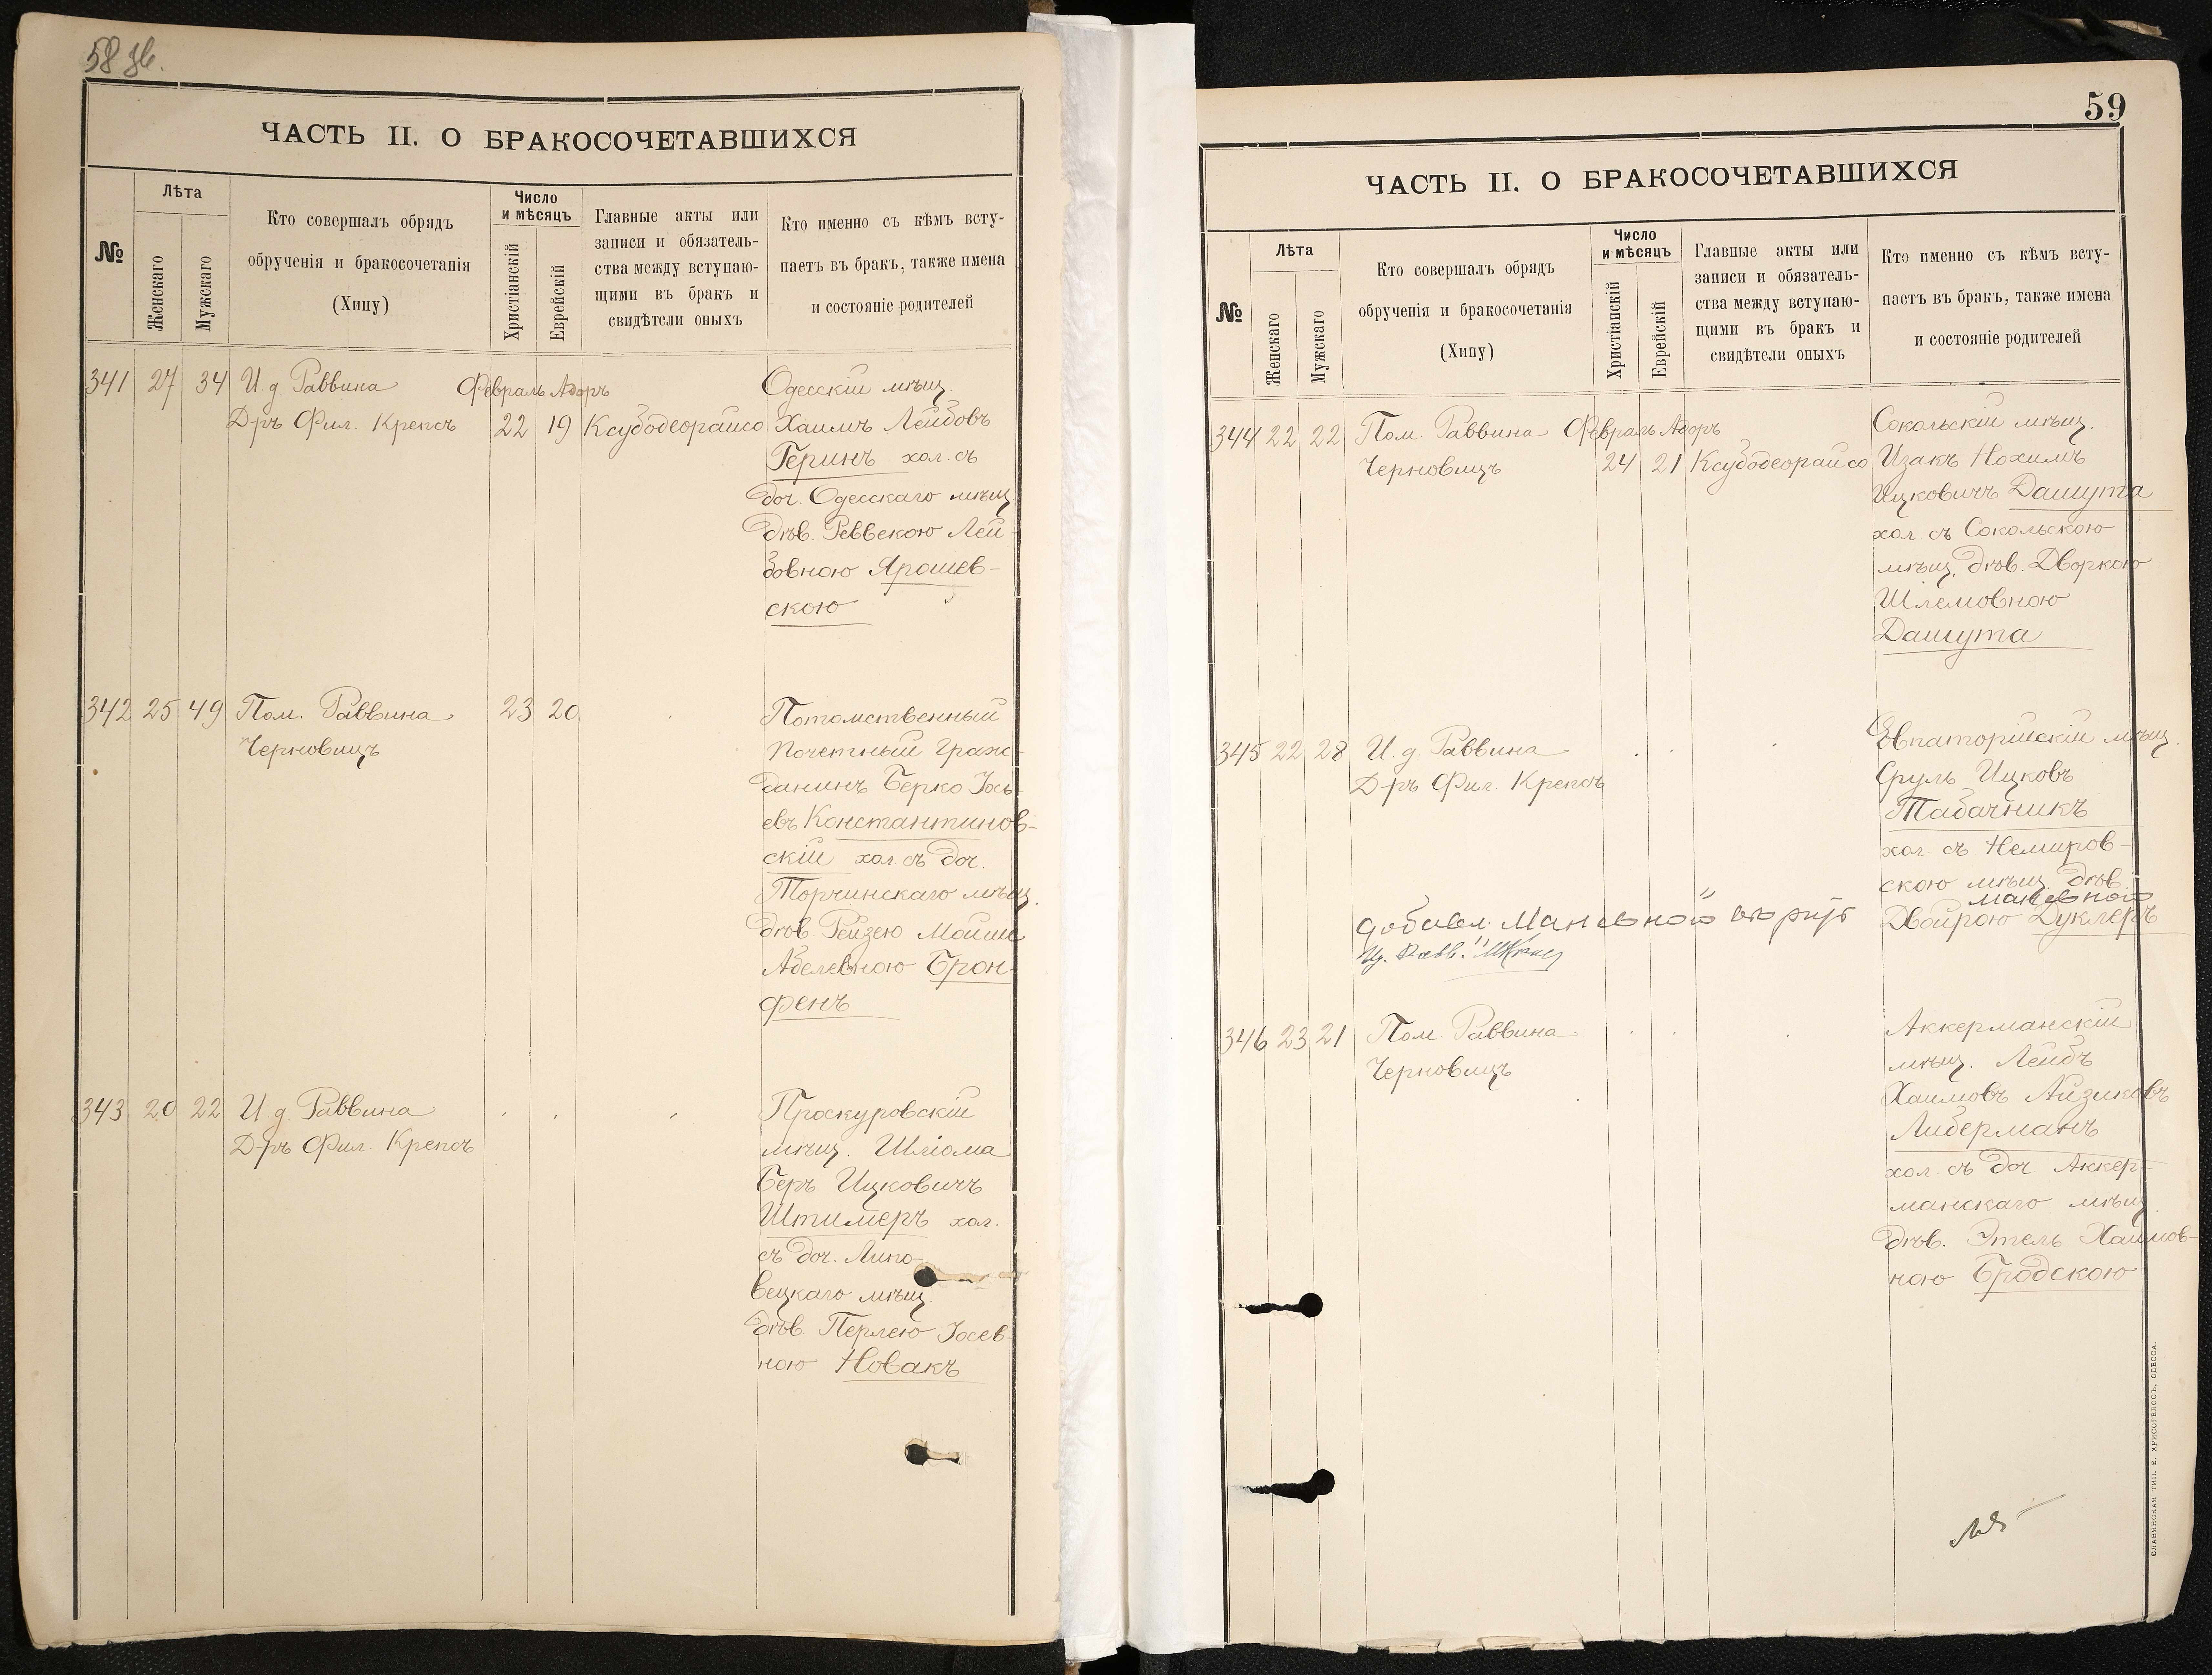 58 зв.
ЧАСТЬ II. О БРАКОСОЧЕТАВШИХСЯ
№
Лѣта
Женскаго
Мужскаго
Кто совершалъ обрядъ
обрученія и бракосочетанія
(Хипу)
Число
и мѣсяцъ
Христіанскій
Еврейскій
Главные акты или
записи и обязатель-
ства между вступаю-
щими въ бракъ и
свидѣтели оныхъ
Кто именно съ кѣмъ всту-
паетъ въ бракъ, также имена
и состояніе родителей
341 27 34 И. д. Раввина Февраль Адоръ Одесскій мѣщ.
Д-ръ Фил. Крепсъ 22 19 Ксубодеорайсо Хаимъ Лейбовъ
Геринъ хол. съ
доч. Одесскаго мѣщ.
дѣв. Реввекою Лей-
бовною Ярошев-
скою
342 25 49 Пом. Раввина 23 20 Потомственный
Черновицъ Почетный Граж-
данинъ Берко Іось-
евъ Константинов-
скій хол. съ доч.
Торчинскаго мѣщ.
дѣв. Рейзею Мойши
Абелевною Брон-
фенъ
343 20 22 И. д. Раввина Проскуровскій
Д-ръ Фил. Крепсъ мѣщ. Шліома
Беръ Ицковичъ
Штимеръ хол.
съ доч. Липо-
вецкаго мѣщ.
дѣв. Перлею Іосев-
ною Новакъ
59
ЧАСТЬ II. О БРАКОСОЧЕТАВШИХСЯ
№
Лѣта
Женскаго
Мужскаго
Кто совершалъ обрядъ
обрученія и бракосочетанія
(Хипу)
Число
и мѣсяцъ
Христіанскій
Еврейскій
Главные акты или
записи и обязатель-
ства между вступаю-
щими въ бракъ и
свидѣтели оныхъ
Кто именно съ кѣмъ всту-
паетъ въ бракъ, также имена
и состояніе родителей
344 22 22 Пом. Раввина Февраль Адоръ Сокольскій мѣщ.
Черновицъ 24 21 Ксубодеорайсо Изакъ Нохимъ
Ицковичъ Дашута
хол. съ Сокольскою
мѣщ. дѣв. Дворкою
Шлемовною
Дашута
345 22 28 И. д. Раввина Евпаторійскій мѣщ.
Д-ръ Фил. Крепсъ Сруль Ицковъ
Табачникъ
хол. съ Немиров-
скою мѣщ. дѣв.
Маневной
добавл. Маневной" Двойрою Дуклеръ
И. д. Равв.
346 23 21 Пом. Раввина Аккерманскій
Черновицъ мѣщ. Лейбъ
Хаимовъ Айзиковъ
Либерманъ
хол. съ доч. Аккер-
манскаго мѣщ.
дѣв. Этель Хаимов-
ною Бродскою
СЛАВЯНСКАЯ ТИП. Е. ХРИСОГЕЛОСЪ, ОДЕССА.